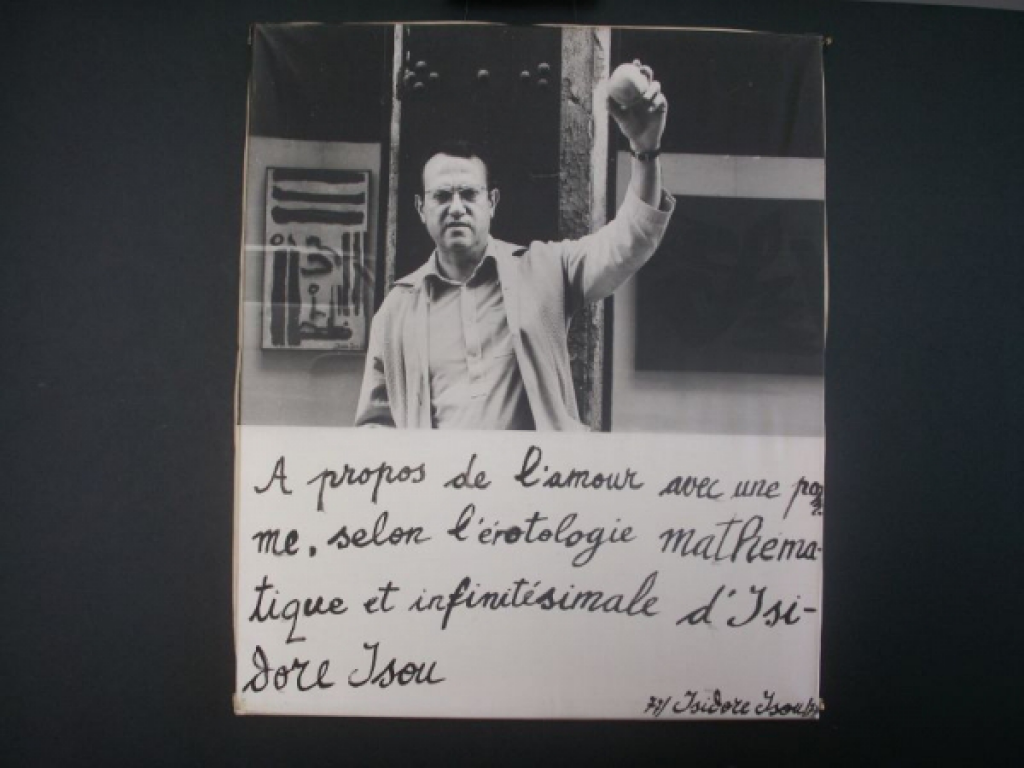 A propos de l'amour avec une pom-
me. selon l'érotologie mathéma-
tique et infinitésimale d'Isi-
dore Isou
Isidore Isou